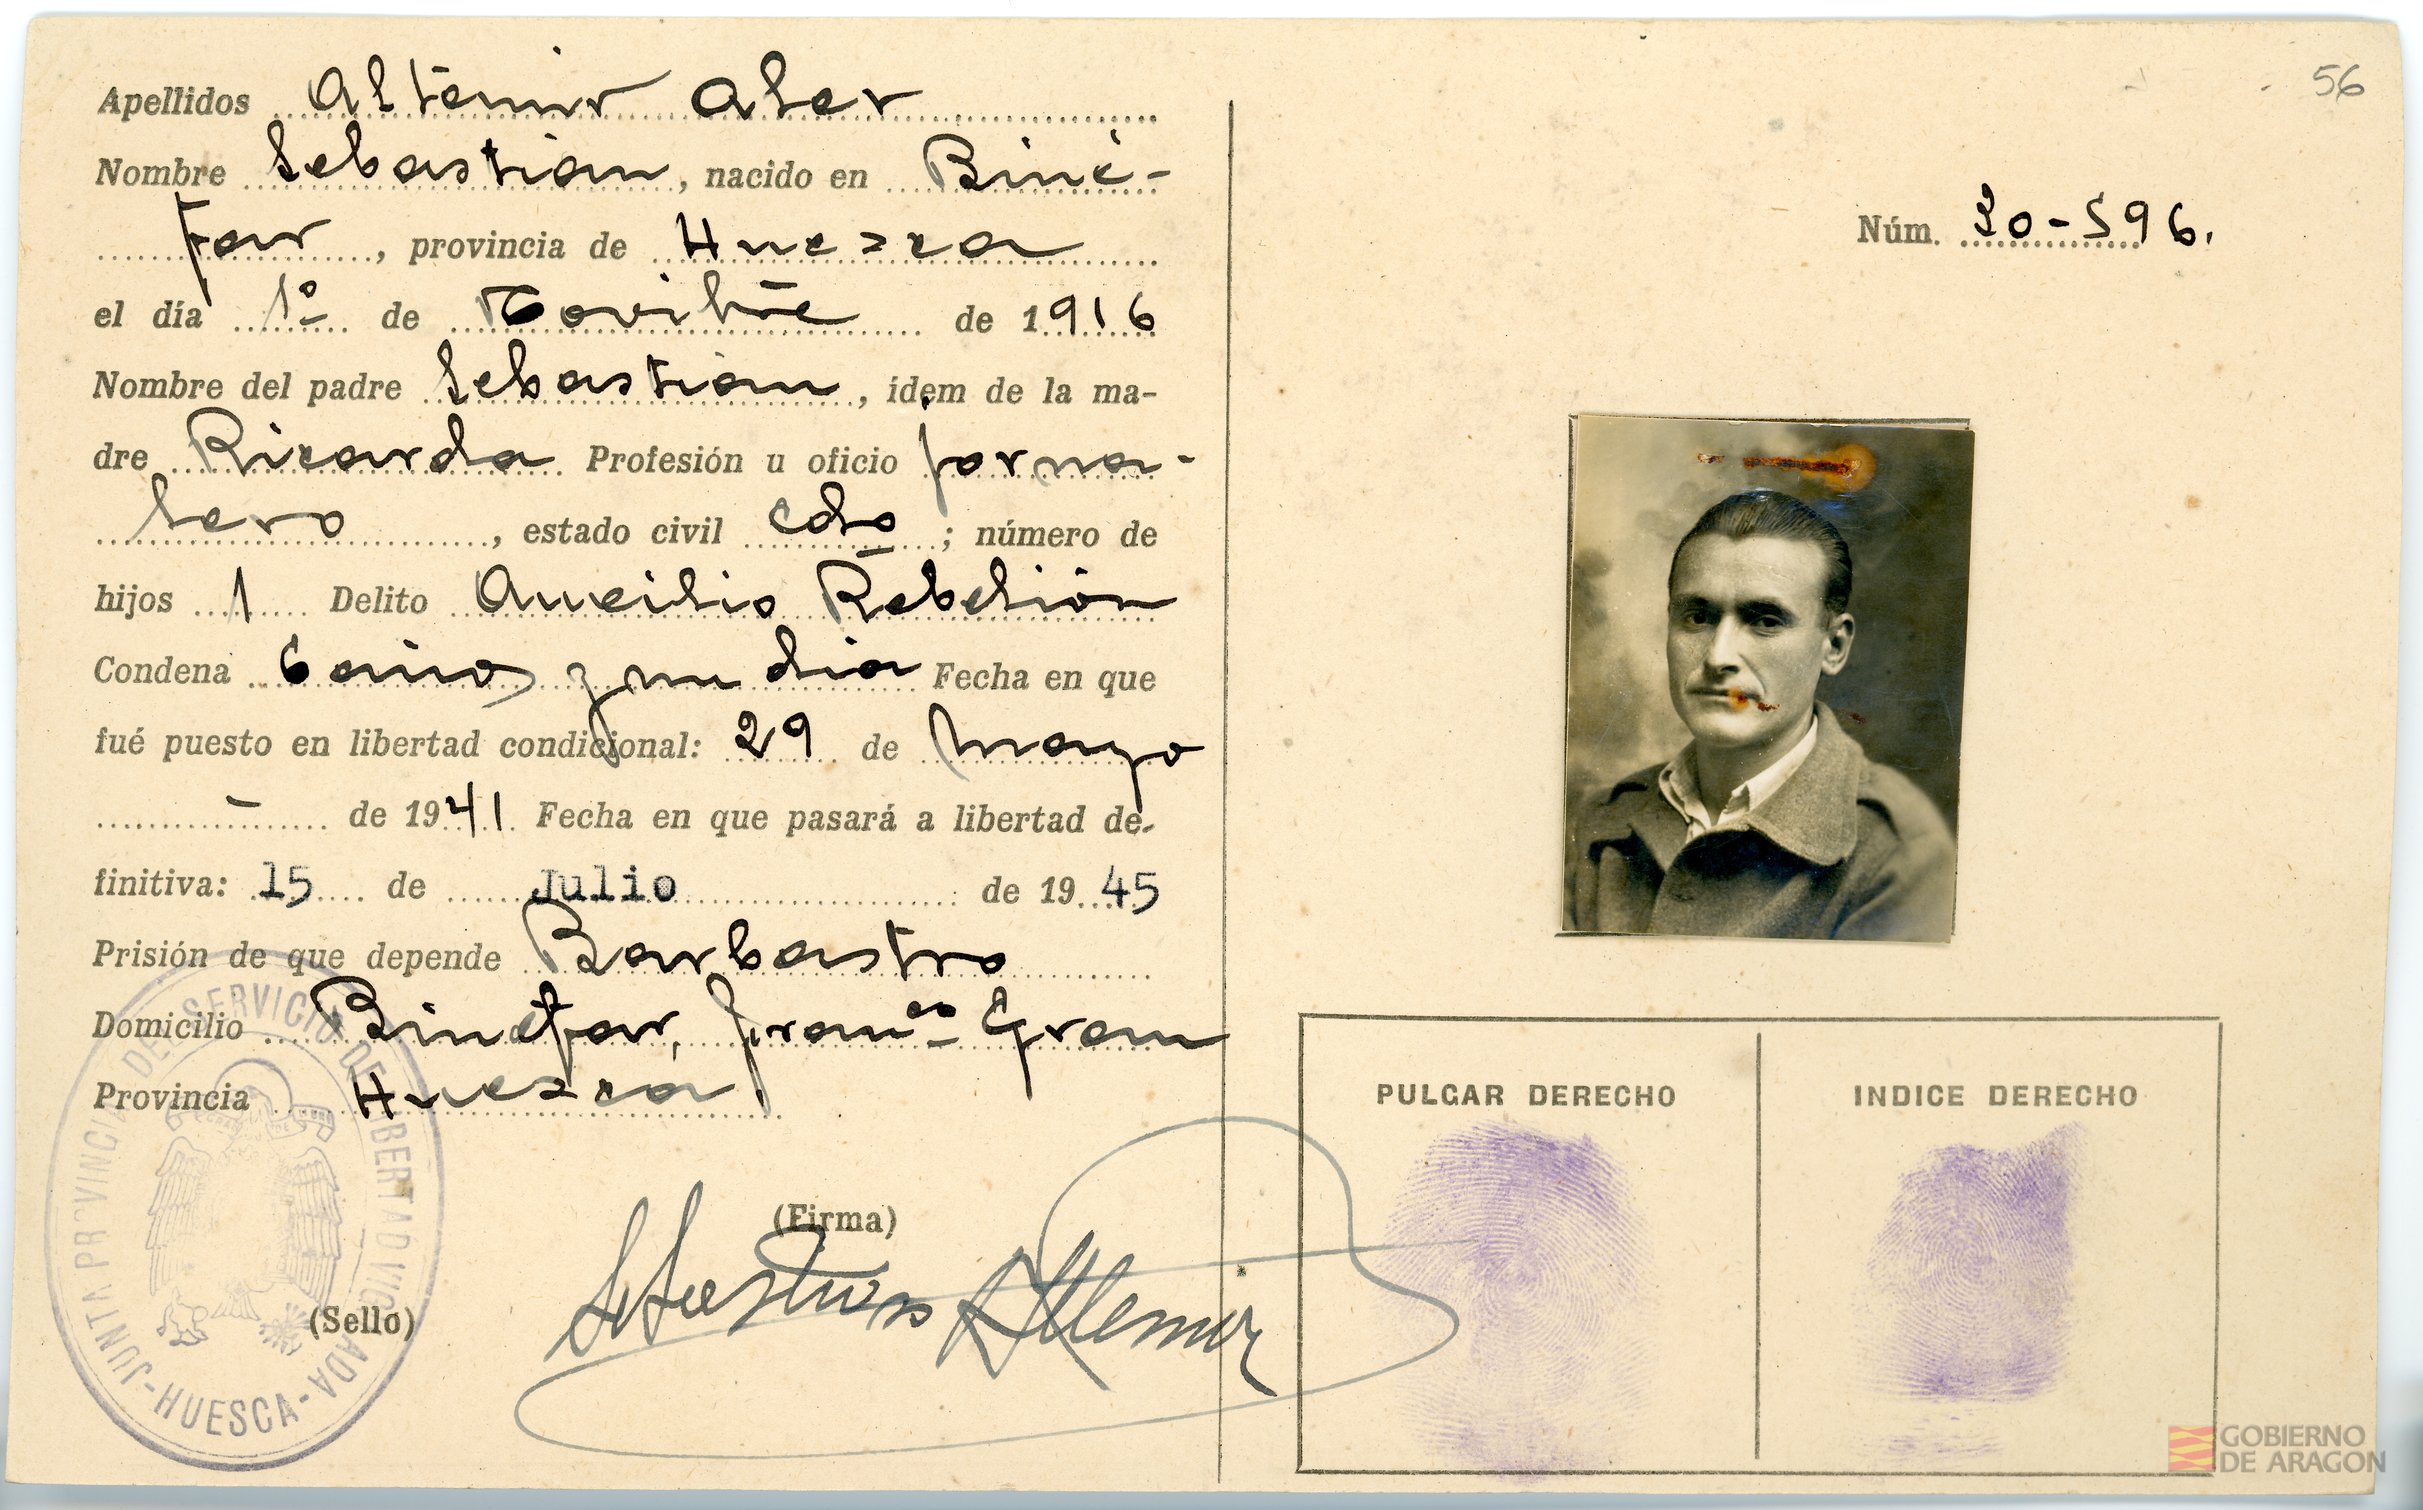 56
Apellidos Altemir Aler
Nombre Sebastian, nacido en Biné-
far, provincia de Huesca
el día 1º de Novibre de 1916
Nombre del padre Sebastian, ídem de la ma-
dre Ricarda Profesión u oficio jorna-
lero, estado civil cdo; número de
hijos 1 Delito Aucilio Rebelión
Condena 6 años y un dia Fecha en que
fué puesto en libertad condicional: 29 de mayo
- de 1941 Fecha en que pasará a libertad de-
finitiva: 15 de Julio de 1945
Prisión de que depende Barbastro
Domicilio Binefar, Franco Gran
Provincia Huesca.
(Firma)
Sebastian Altemir
(Sello)
JUNTA PROVINCIAL DE SERVICIO DE LIBERTAD VIGILADA
-HUESCA-
Núm. 30-596.
PULGAR DERECHO
INDICE DERECHO
GOBIERNO
DE ARAGON